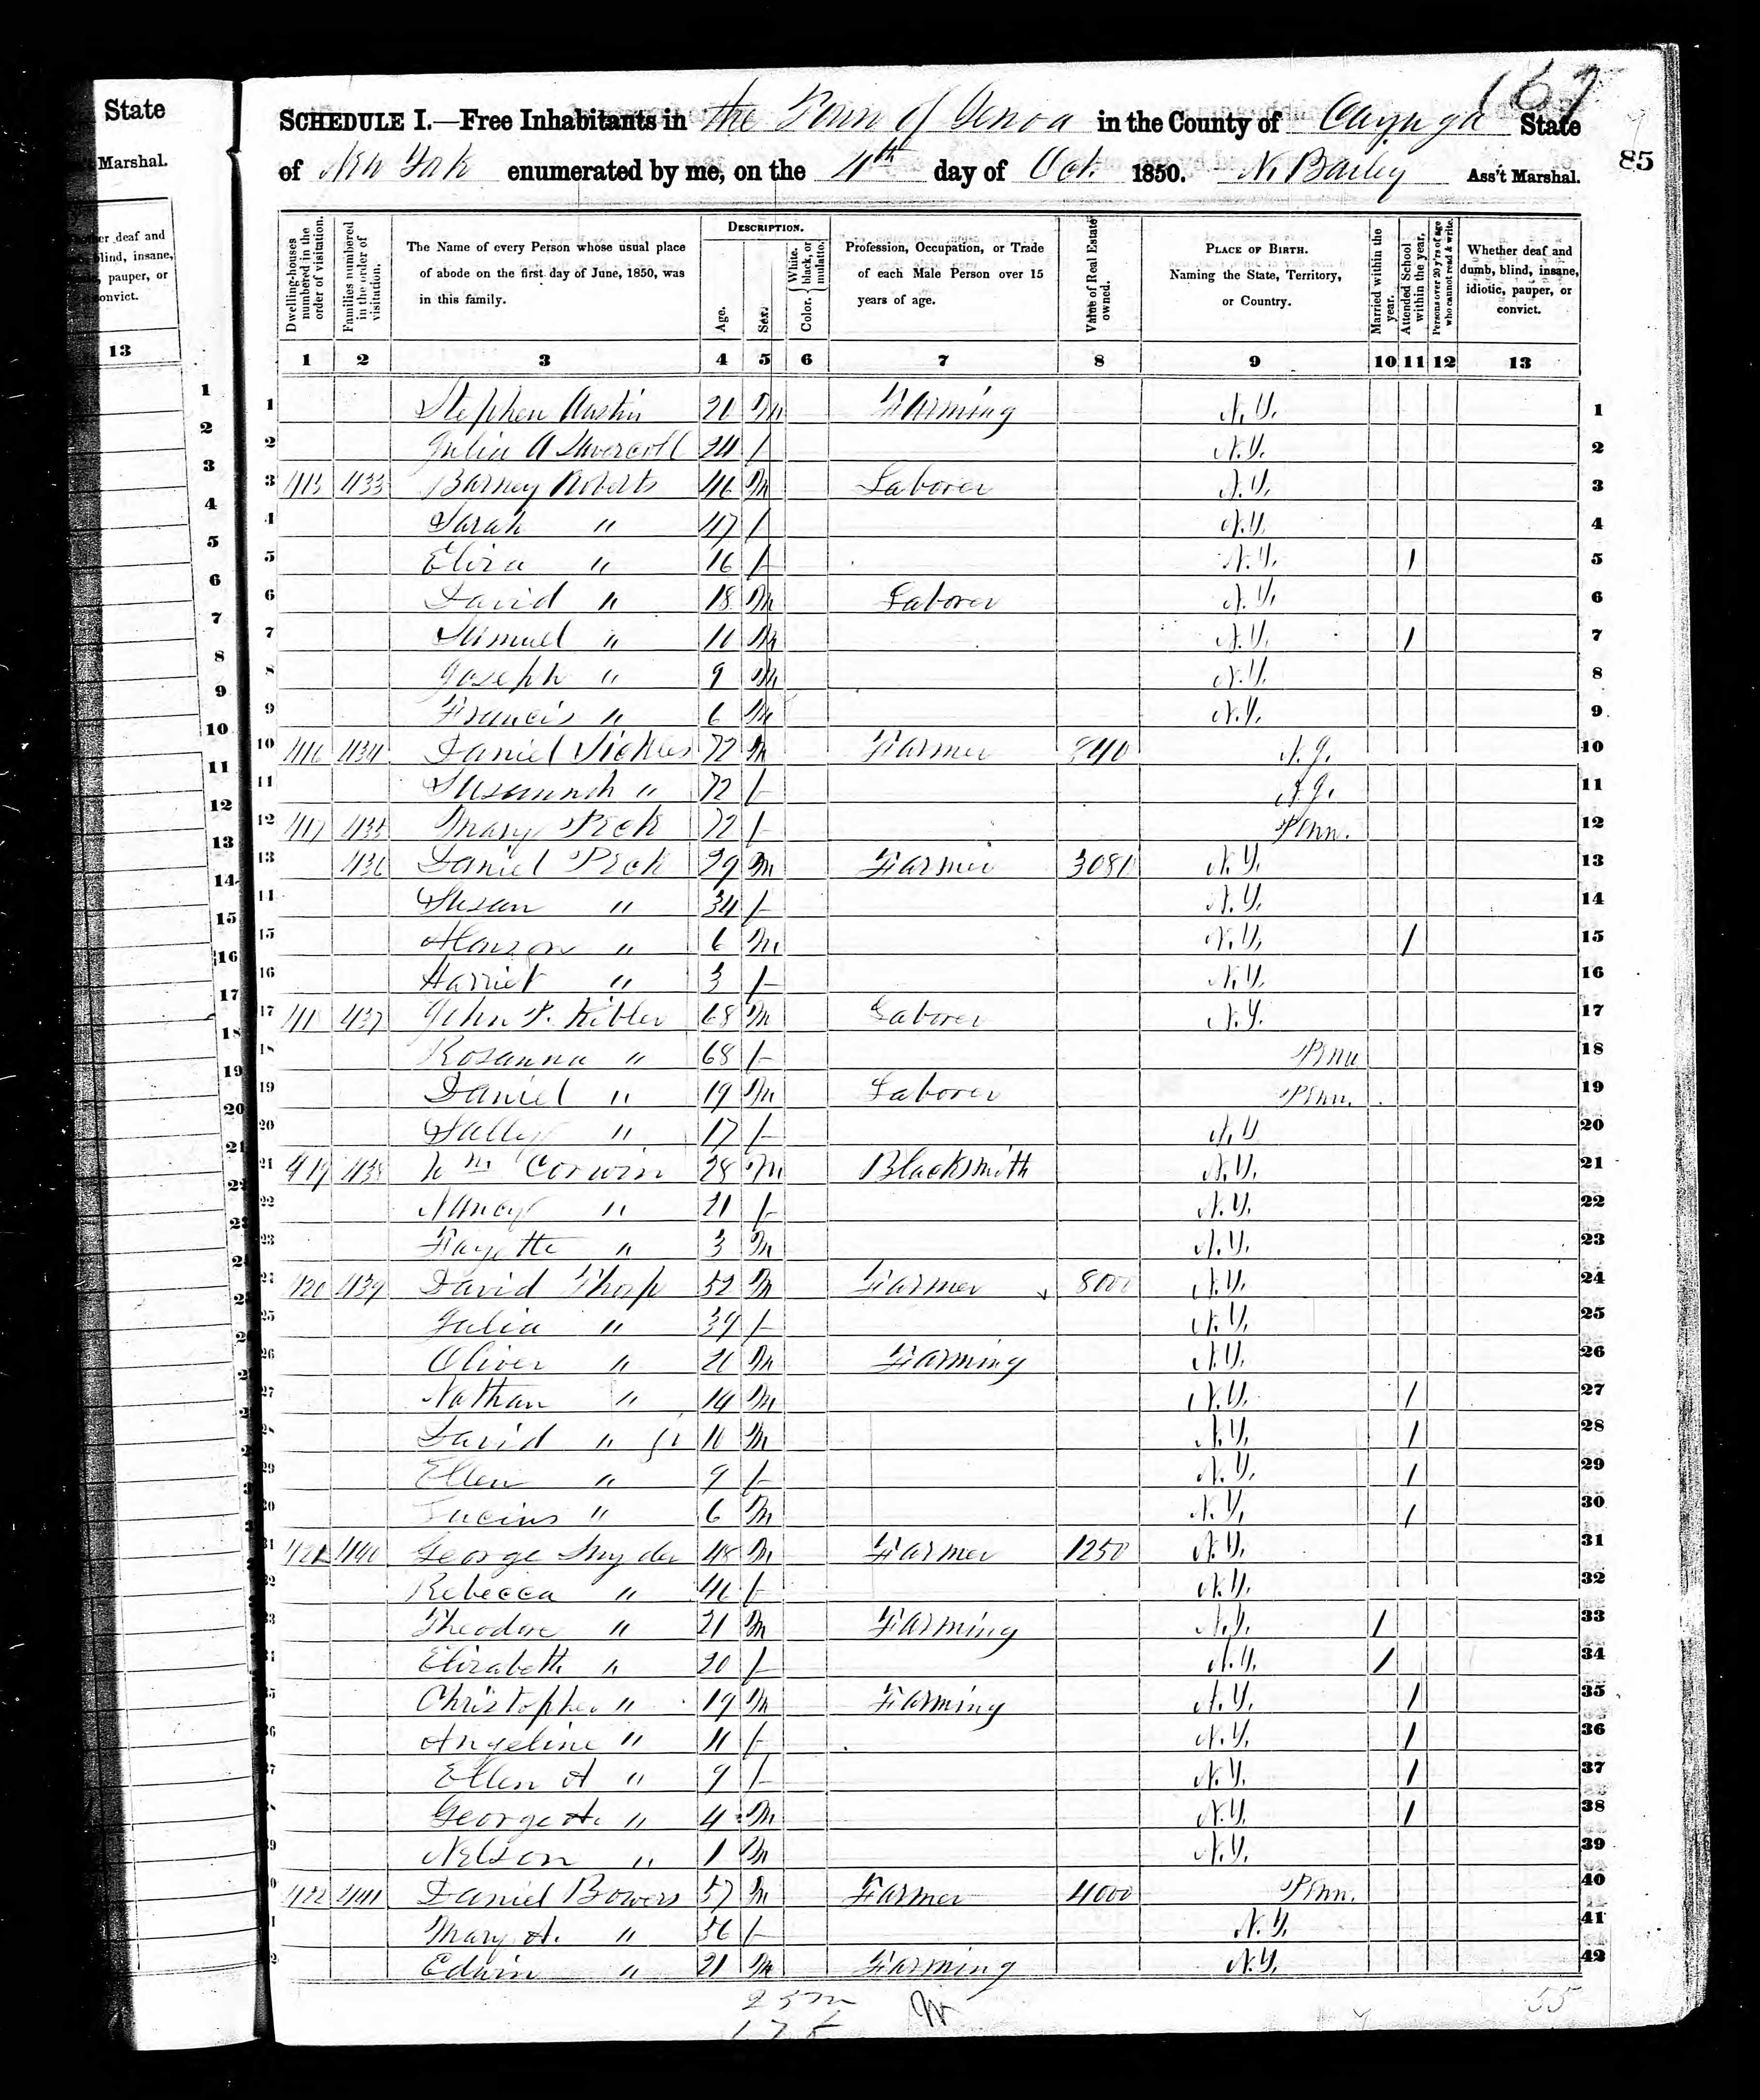 State
Marshal.
deaf and
blind, insane,
pauper, or
convict.
13
167
SCHEDULE I.—Free Inhabitants in the Town of Genoa in the County of Cayuga State
85
of New York enumerated by me, on the 4th day of Oct. 1850. N. Bailey Ass't Marshal.
Dwelling-houses numbered in the order of visitation.
Families numbered in the order of visitation.
The Name of every Person whose usual place of abode on the first day of June, 1850, was in this family.
DESCRIPTION.
Age.
Sex.
Color. White, black, or mulatto.
Profession, Occupation, or Trade of each Male Person over 15 years of age.
Value of Real Estate owned.
PLACE OF BIRTH. Naming the State, Territory, or Country.
Married within the year.
Attended School within the year.
Persons over 20 y'rs of age who cannot read & write.
Whether deaf and dumb, blind, insane, idiotic, pauper, or convict.
1 2 3 4 5 6 7 8 9 10 11 12 13
1 Stephen Austin m Farming N.Y. 1
2 Julia A 24 f N.Y. 2
3 433 Barney Roberts 46 m Laborer N.Y. 3
4 Sarah " 47 f N.Y. 4
5 Eliza " 16 f N.Y. 1 5
6 David " 18 m Laborer N.Y. 6
7 " m N.Y. 1 7
8 Joseph " 9 m N.Y. 8
9 Francis " 6 m N.Y. 9
10 416 434 Daniel Sickles 72 m Farmer 840 N.J. 10
11 Susannah " 72 f N.J. 11
12 417 435 Mary Peck 72 f Penn. 12
13 436 Daniel Peck 29 m Farmer 3081 N.Y. 13
14 Susan " 34 f N.Y. 14
15 Alanson " 6 m N.Y. 1 15
16 Harriet " 3 f N.Y. 16
17 418 437 John P. Kibler 68 m Laborer N.Y. 17
18 Rosanna " 68 f Penn 18
19 Daniel " 19 m Laborer Penn. 19
20 Sally " 17 f N.Y 20
21 419 438 Wm Corwin 28 m Blacksmith N.Y. 21
22 Nancy " 21 f N.Y. 22
23 Fayette " 3 m N.Y. 23
24 420 439 David Thorp 52 m Farmer 8000 N.Y. 24
25 Julia " 39 f N.Y. 25
26 Oliver " m Farming N.Y. 26
27 Nathan " 14 m N.Y. 1 27
28 David " Jr 10 m N.Y. 1 28
29 Ellen " 9 f N.Y. 1 29
30 Lucius " 6 m N.Y. 1 30
31 421 440 George Snyder 48 m Farmer 1250 N.Y. 31
32 Rebecca " 46 f N.Y. 32
33 Theodore " 21 m Farming 1 33
34 Elizabeth " 20 f N.Y. 1 34
35 Christopher " 19 m Farming N.Y. 1 35
36 Angeline " 11 f N.Y. 1 36
37 Ellen A " 9 f N.Y. 1 37
38 George A. " 4 m N.Y. 1 38
39 Nelson " 1 m N.Y. 39
40 422 441 Daniel Bowers 57 m Farmer 4000 Penn. 40
41 Mary A. " 56 f N.Y. 41
42 Edwin " 21 m Farming N.Y. 42
25 m
17 f
55